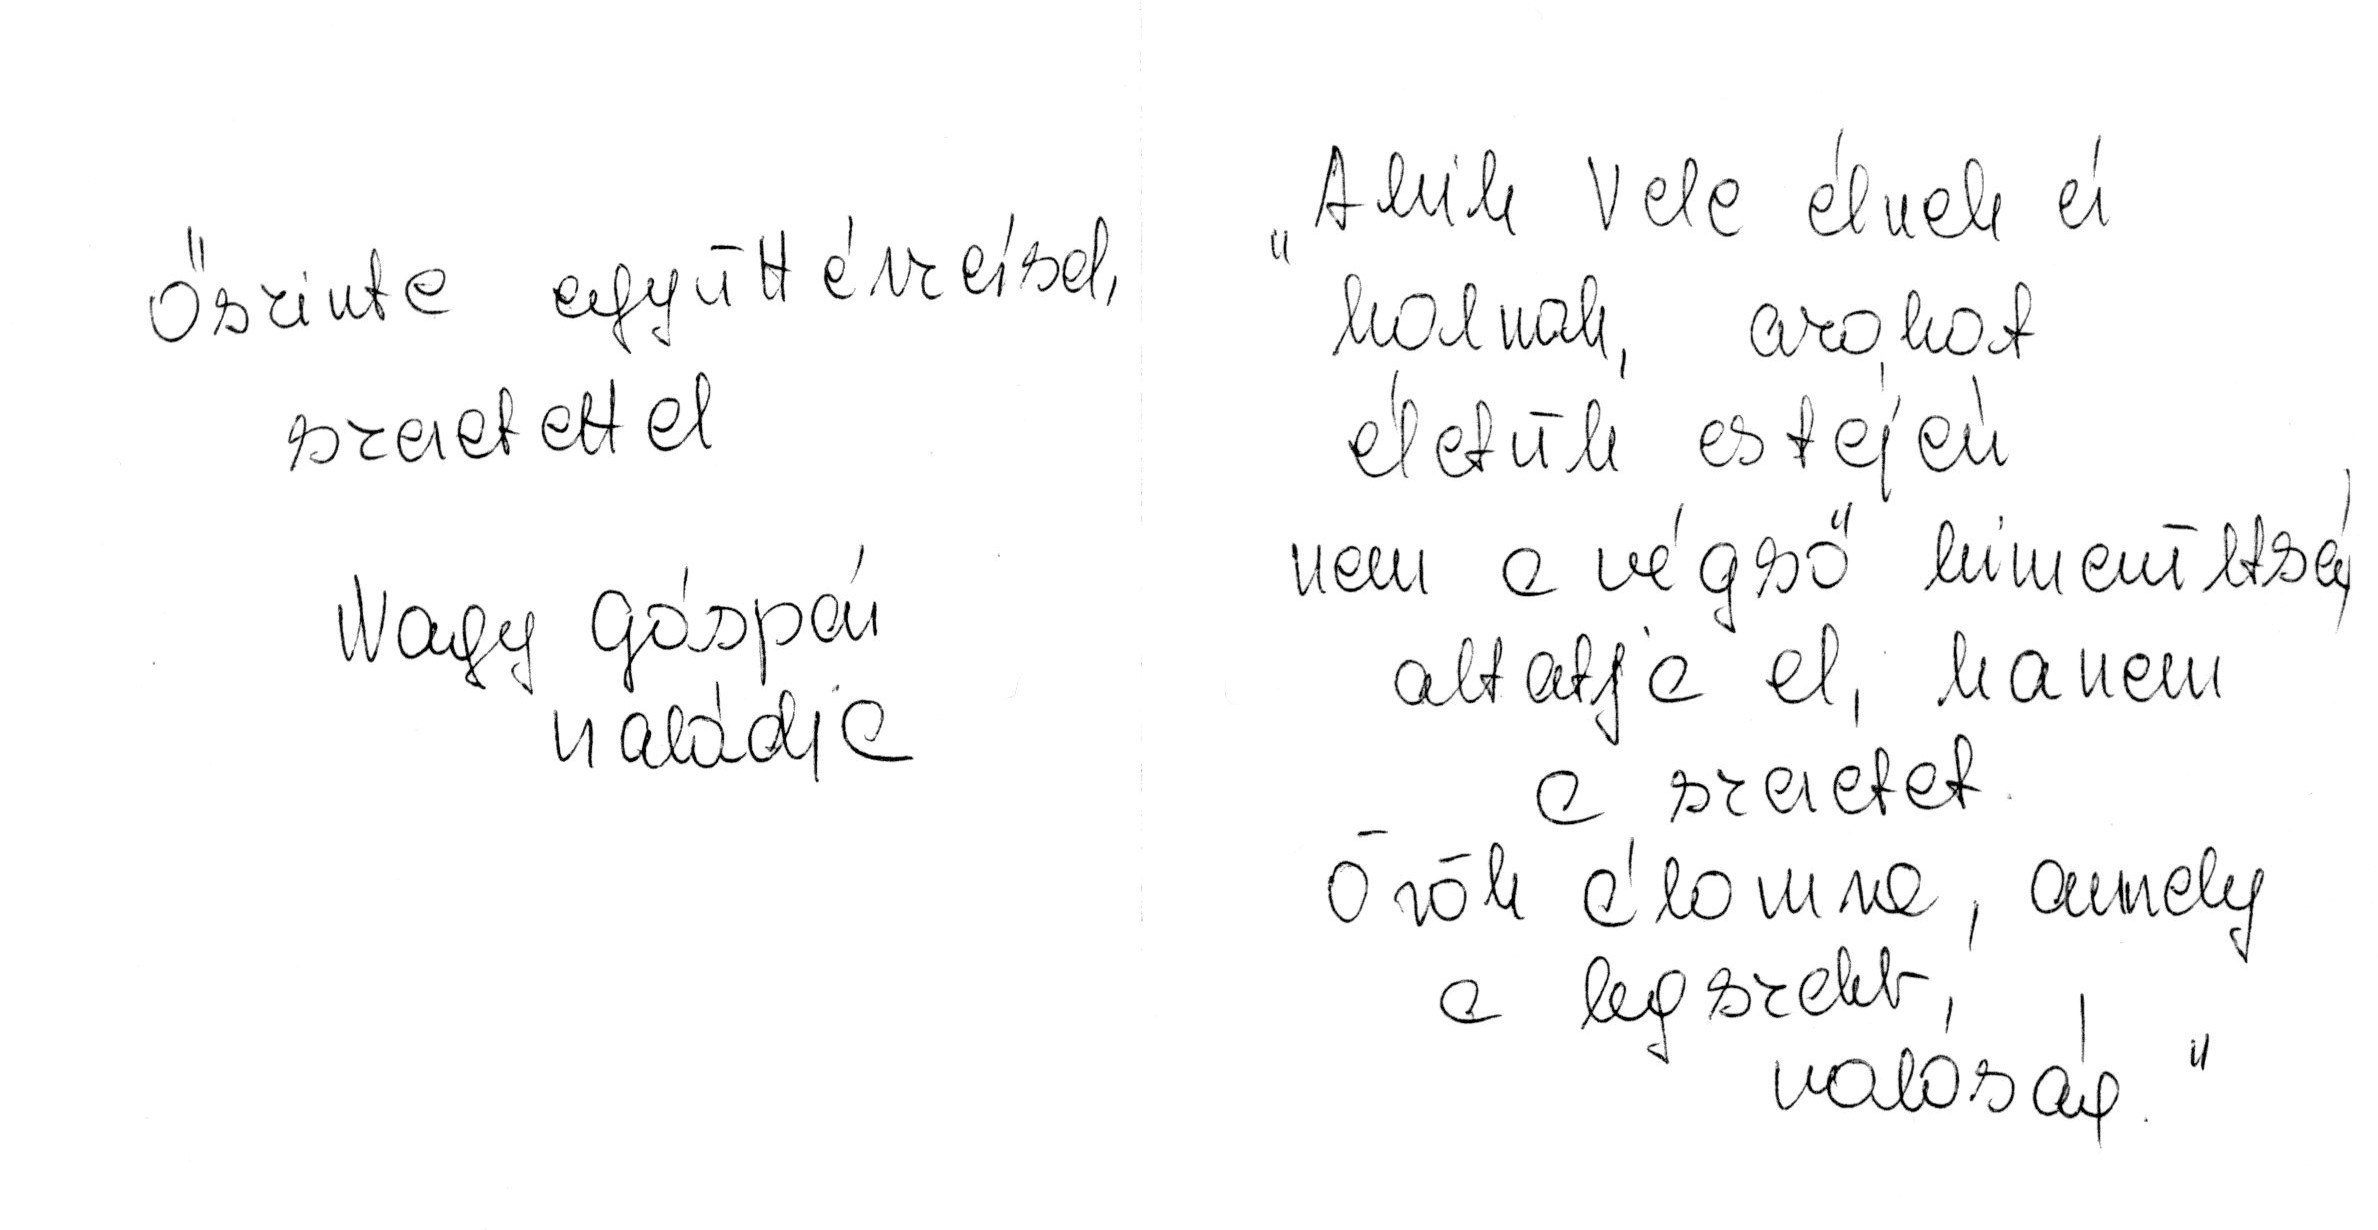 Őszinte együttérzéssel,
szeretettel
Nagy Gáspár
családja
„Akik Vele élnek és
halnak, azokat
életük estéjén
nem a végső kimerültség
altatja el, hanem
a szeretet.
Örök álomra, amely
a legszebb,
valóság."